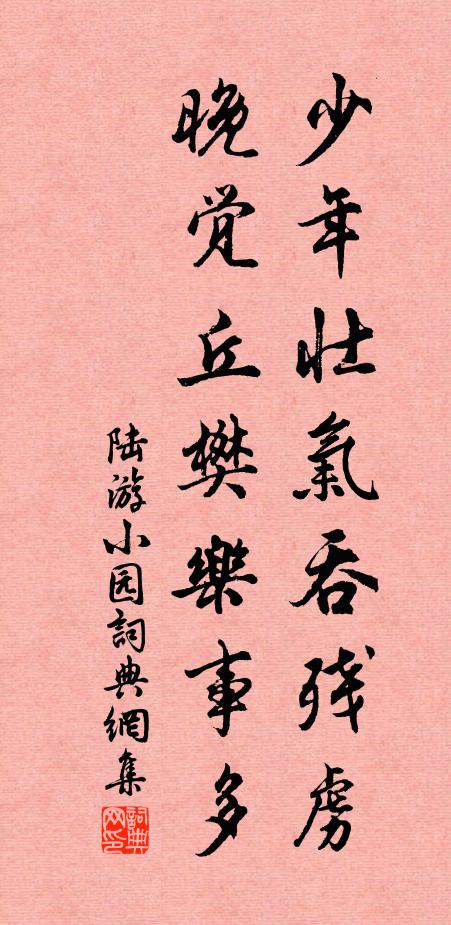 少年壮氣吞残虜
晚觉丘樊樂事多
陆游小园詞典網集
詞典网印